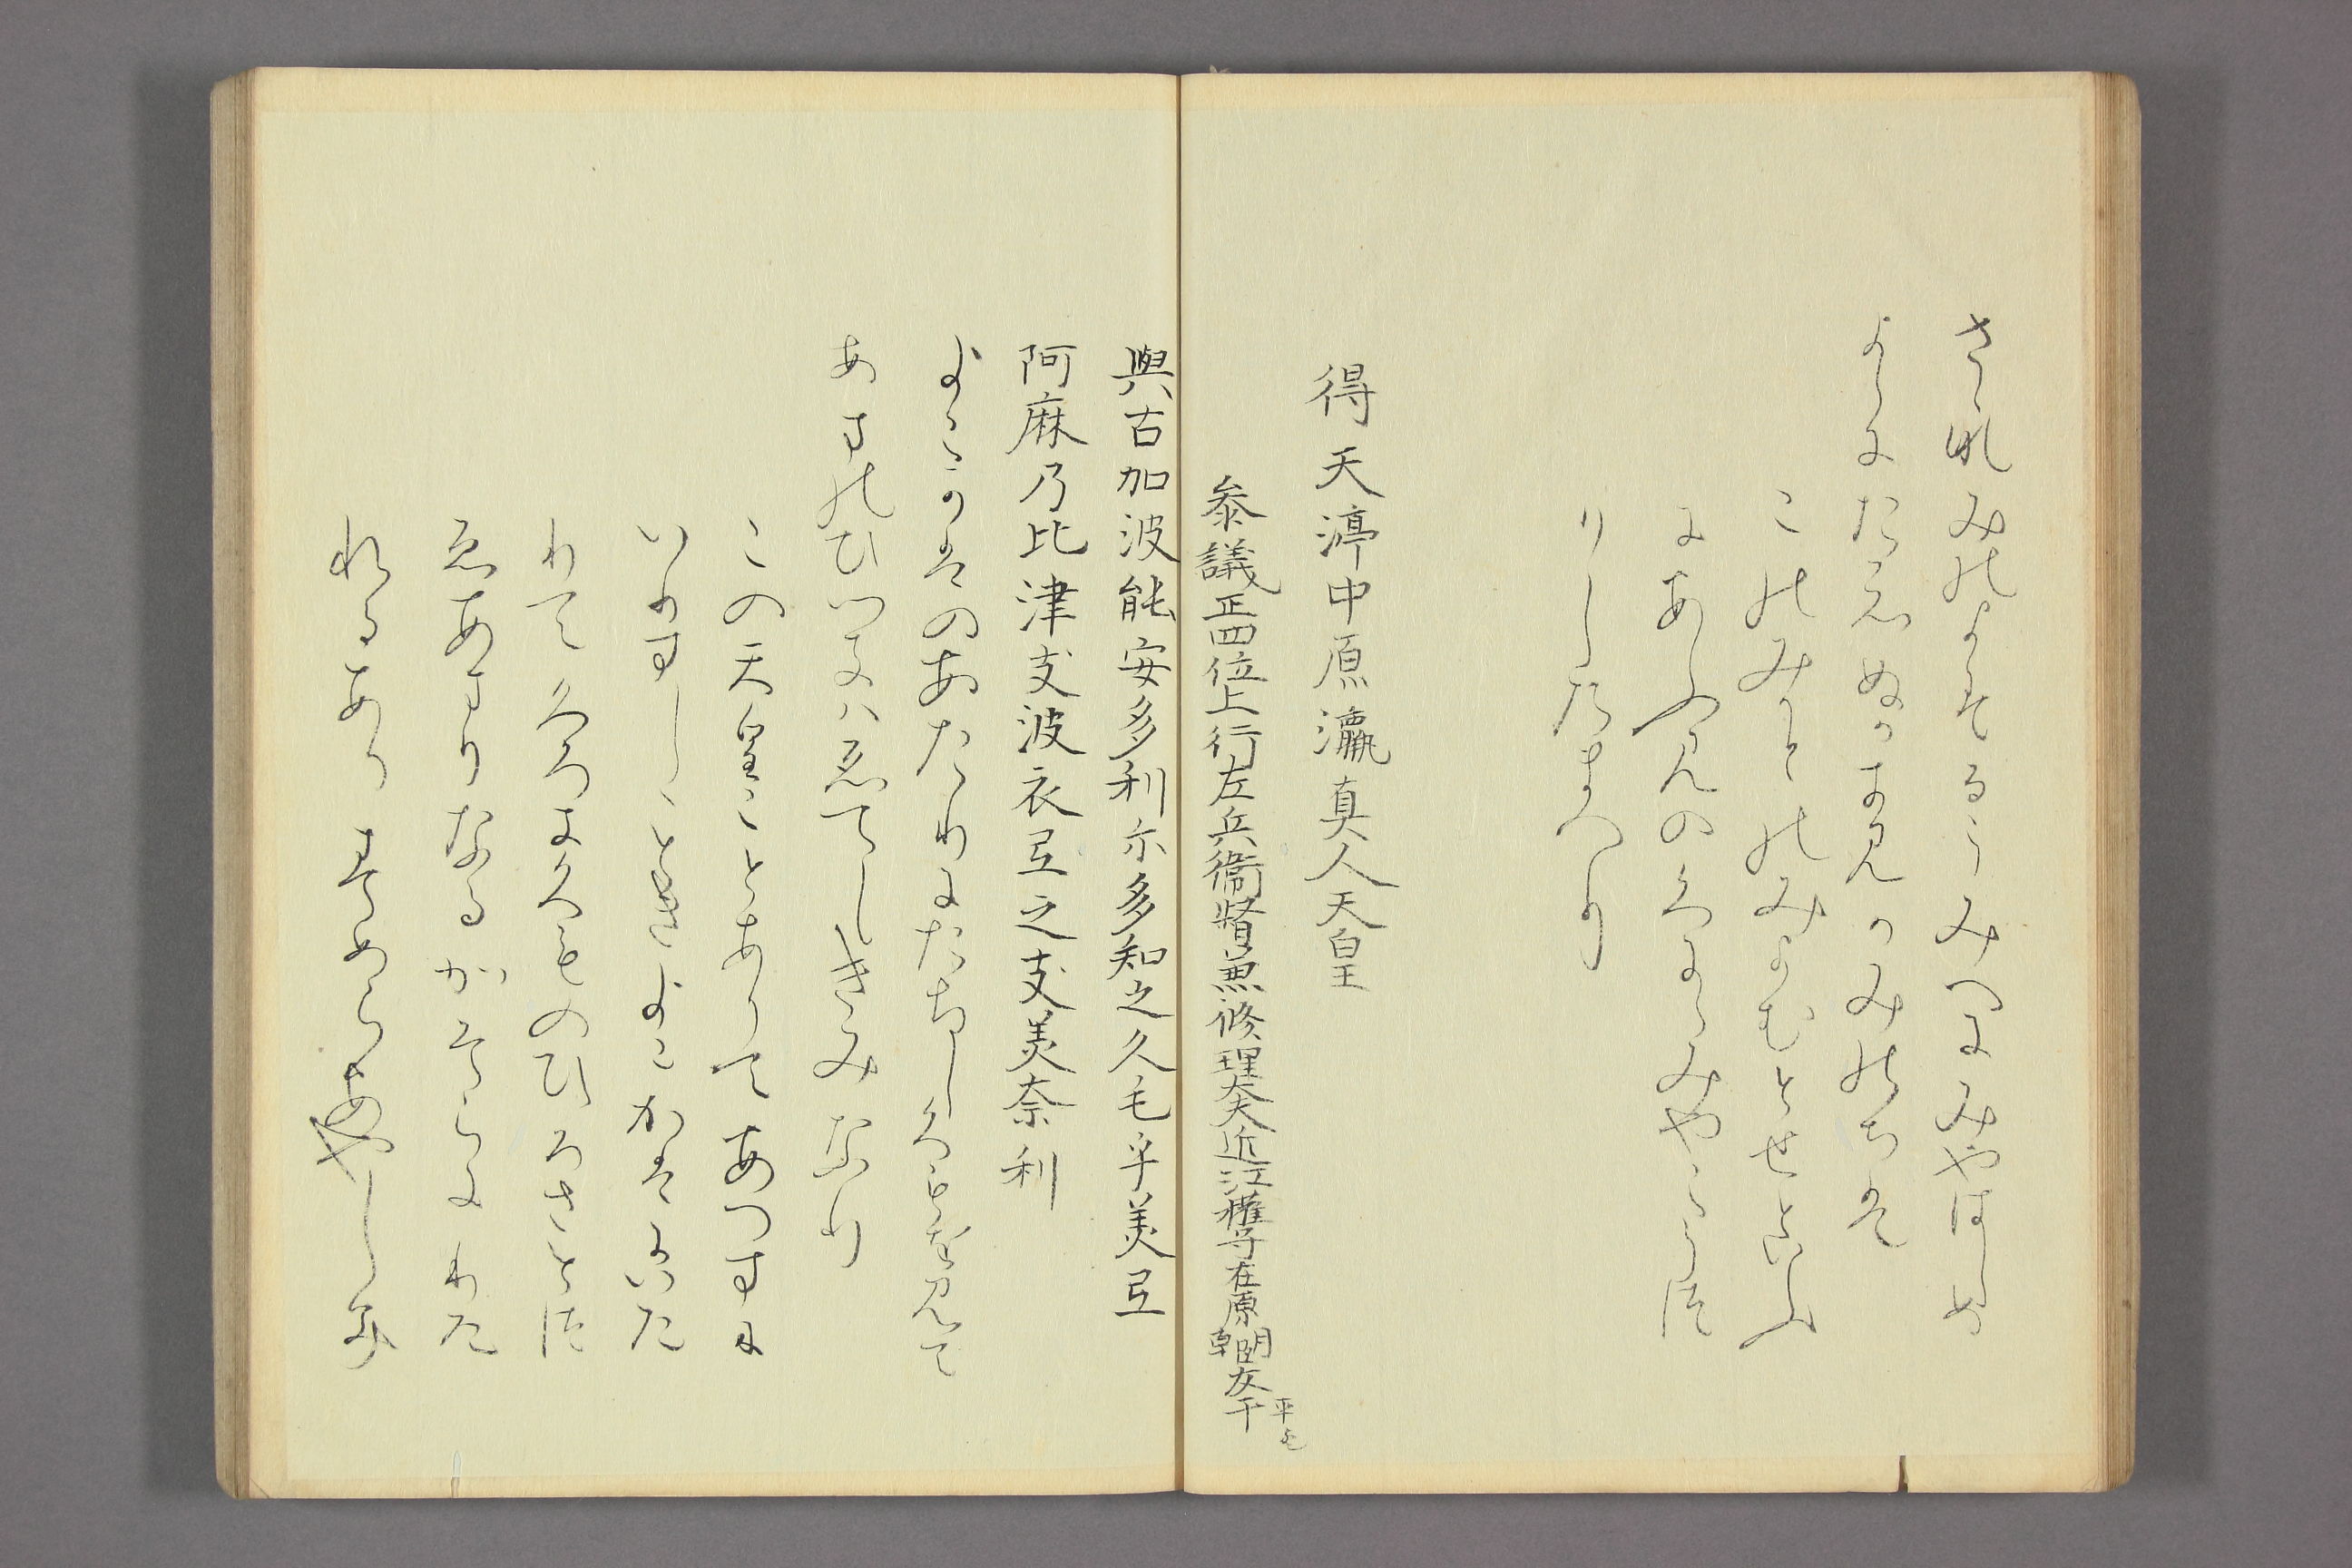 さゝなみのよするうみつにみやはしめ
よゝにたえぬかきみかみのちは
このみかとのみよむとせといふ
にあふみのくにゝみやこうつ
りしたまへり
得天渟中原瀛真人天皇
参議正四位上行左兵衛督兼修理大夫近江権守在原朝臣友于
與古加波能安多利尓多知之久毛乎美弖
阿麻乃比津支波衣弖之支美奈利
よこかはのあたりにたちしくもを見て
あまのひつきはゑてしきみなり
この天皇ことありてあつまに
いりましゝときよこかはにいた
りてくろきくものひろさとつ
ゑあまりなるかそらにわた
れるありすめらあやしみ